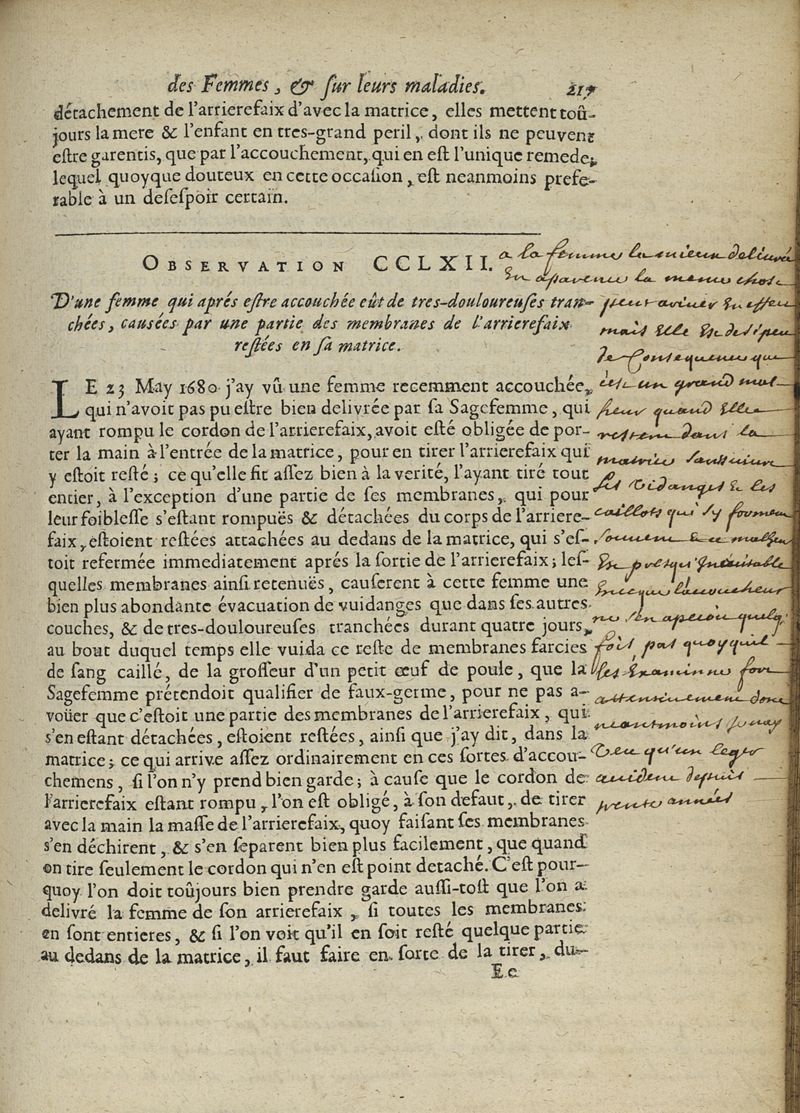 des Femmes, & ſur leurs maladies. 217
détachement de l'arrierefaix d'avec la matrice, elles mettent toû-
jours la mere & l'enfant en tres-grand peril, dont ils ne peuvent
eſtre garentis, que par l'accouchement, qui en eſt l'unique remede,
lequel quoyque douteux en cette occaſion, eſt neanmoins prefe-
rable à un deſeſpoir certain.
OBSERVATION CCLXII.
D'une femme qui aprés eſtre accouchée eût de tres-douloureuſes tran-
chées, cauſées par une partie des membranes de l'arrierefaix
reſtées en ſa matrice.
LE 23 May 1680 j'ay vû une femme recemment accouchée,
qui n'avoit pas pu eſtre bien delivrée par ſa Sagefemme, qui
ayant rompu le cordon de l'arrierefaix, avoit eſté obligée de por-
ter la main à l'entrée de la matrice, pour en tirer l'arrierefaix qui
y eſtoit reſté; ce qu'elle fit aſſez bien à la verité, l'ayant tiré tout
entier, à l'exception d'une partie de ſes membranes, qui pour
leur foibleſſe s'eſtant rompuës & détachées du corps de l'arriere-
faix, eſtoient reſtées attachées au dedans de la matrice, qui s'eſ-
toit refermée immediatement aprés la ſortie de l'arrierefaix; leſ-
quelles membranes ainſi retenuës, cauſerent à cette femme une
bien plus abondante évacuation de vuidanges que dans ſes autres
couches, & de tres-douloureuſes tranchées durant quatre jours,
au bout duquel temps elle vuida ce reſte de membranes farcies
de ſang caillé, de la groſſeur d'un petit œuf de poule, que la
Sagefemme prétendoit qualifier de faux-germe, pour ne pas a-
voüer que c'eſtoit une partie des membranes de l'arrierefaix, qui
s'en eſtant détachées, eſtoient reſtées, ainſi que j'ay dit, dans la
matrice; ce qui arrive aſſez ordinairement en ces ſortes d'accou-
chemens, ſi l'on n'y prend bien garde; à cauſe que le cordon de
l'arrierefaix eſtant rompu, l'on eſt obligé, à ſon defaut, de tirer
avec la main la maſſe de l'arrierefaix, quoy faiſant ſes membranes
s'en déchirent, & s'en ſeparent bien plus facilement, que quand
on tire ſeulement le cordon qui n'en eſt point detaché. C'eſt pour-
quoy l'on doit toûjours bien prendre garde auſſi-toſt que l'on a
delivré la femme de ſon arrierefaix, ſi toutes les membranes
en ſont entieres, & ſi l'on voit qu'il en ſoit reſté quelque partie
au dedans de la matrice, il faut faire en ſorte de la tirer, du-
Ee
la femme
la meme chose
mais elle
un grand mal
quand elle
dans la
les vidanges & les
caillots qui s'y forment
l'accoucheur
ne s'en aperçoit quelq
fois pas quoyque
attentivement
qu'un leger
accident depuis
trente années